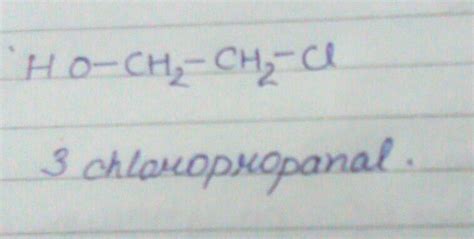 HO-CH₂-CH₂-Cl
3 chloropropanal.